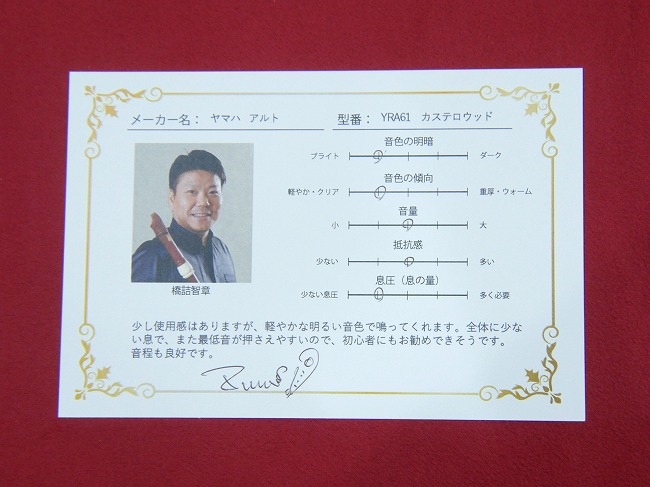 メーカー名： ヤマハ アルト
型番： YRA61 カステロウッド
音色の明暗
ブライト ダーク
音色の傾向
軽やか・クリア 重厚・ウォーム
音量
小 大
抵抗感
少ない 多い
息圧（息の量）
少ない息圧 多く必要
橋詰智章
少し使用感はありますが、軽やかな明るい音色で鳴ってくれます。全体に少な
い息で、また最低音が押さえやすいので、初心者にもお勧めできそうです。
音程も良好です。